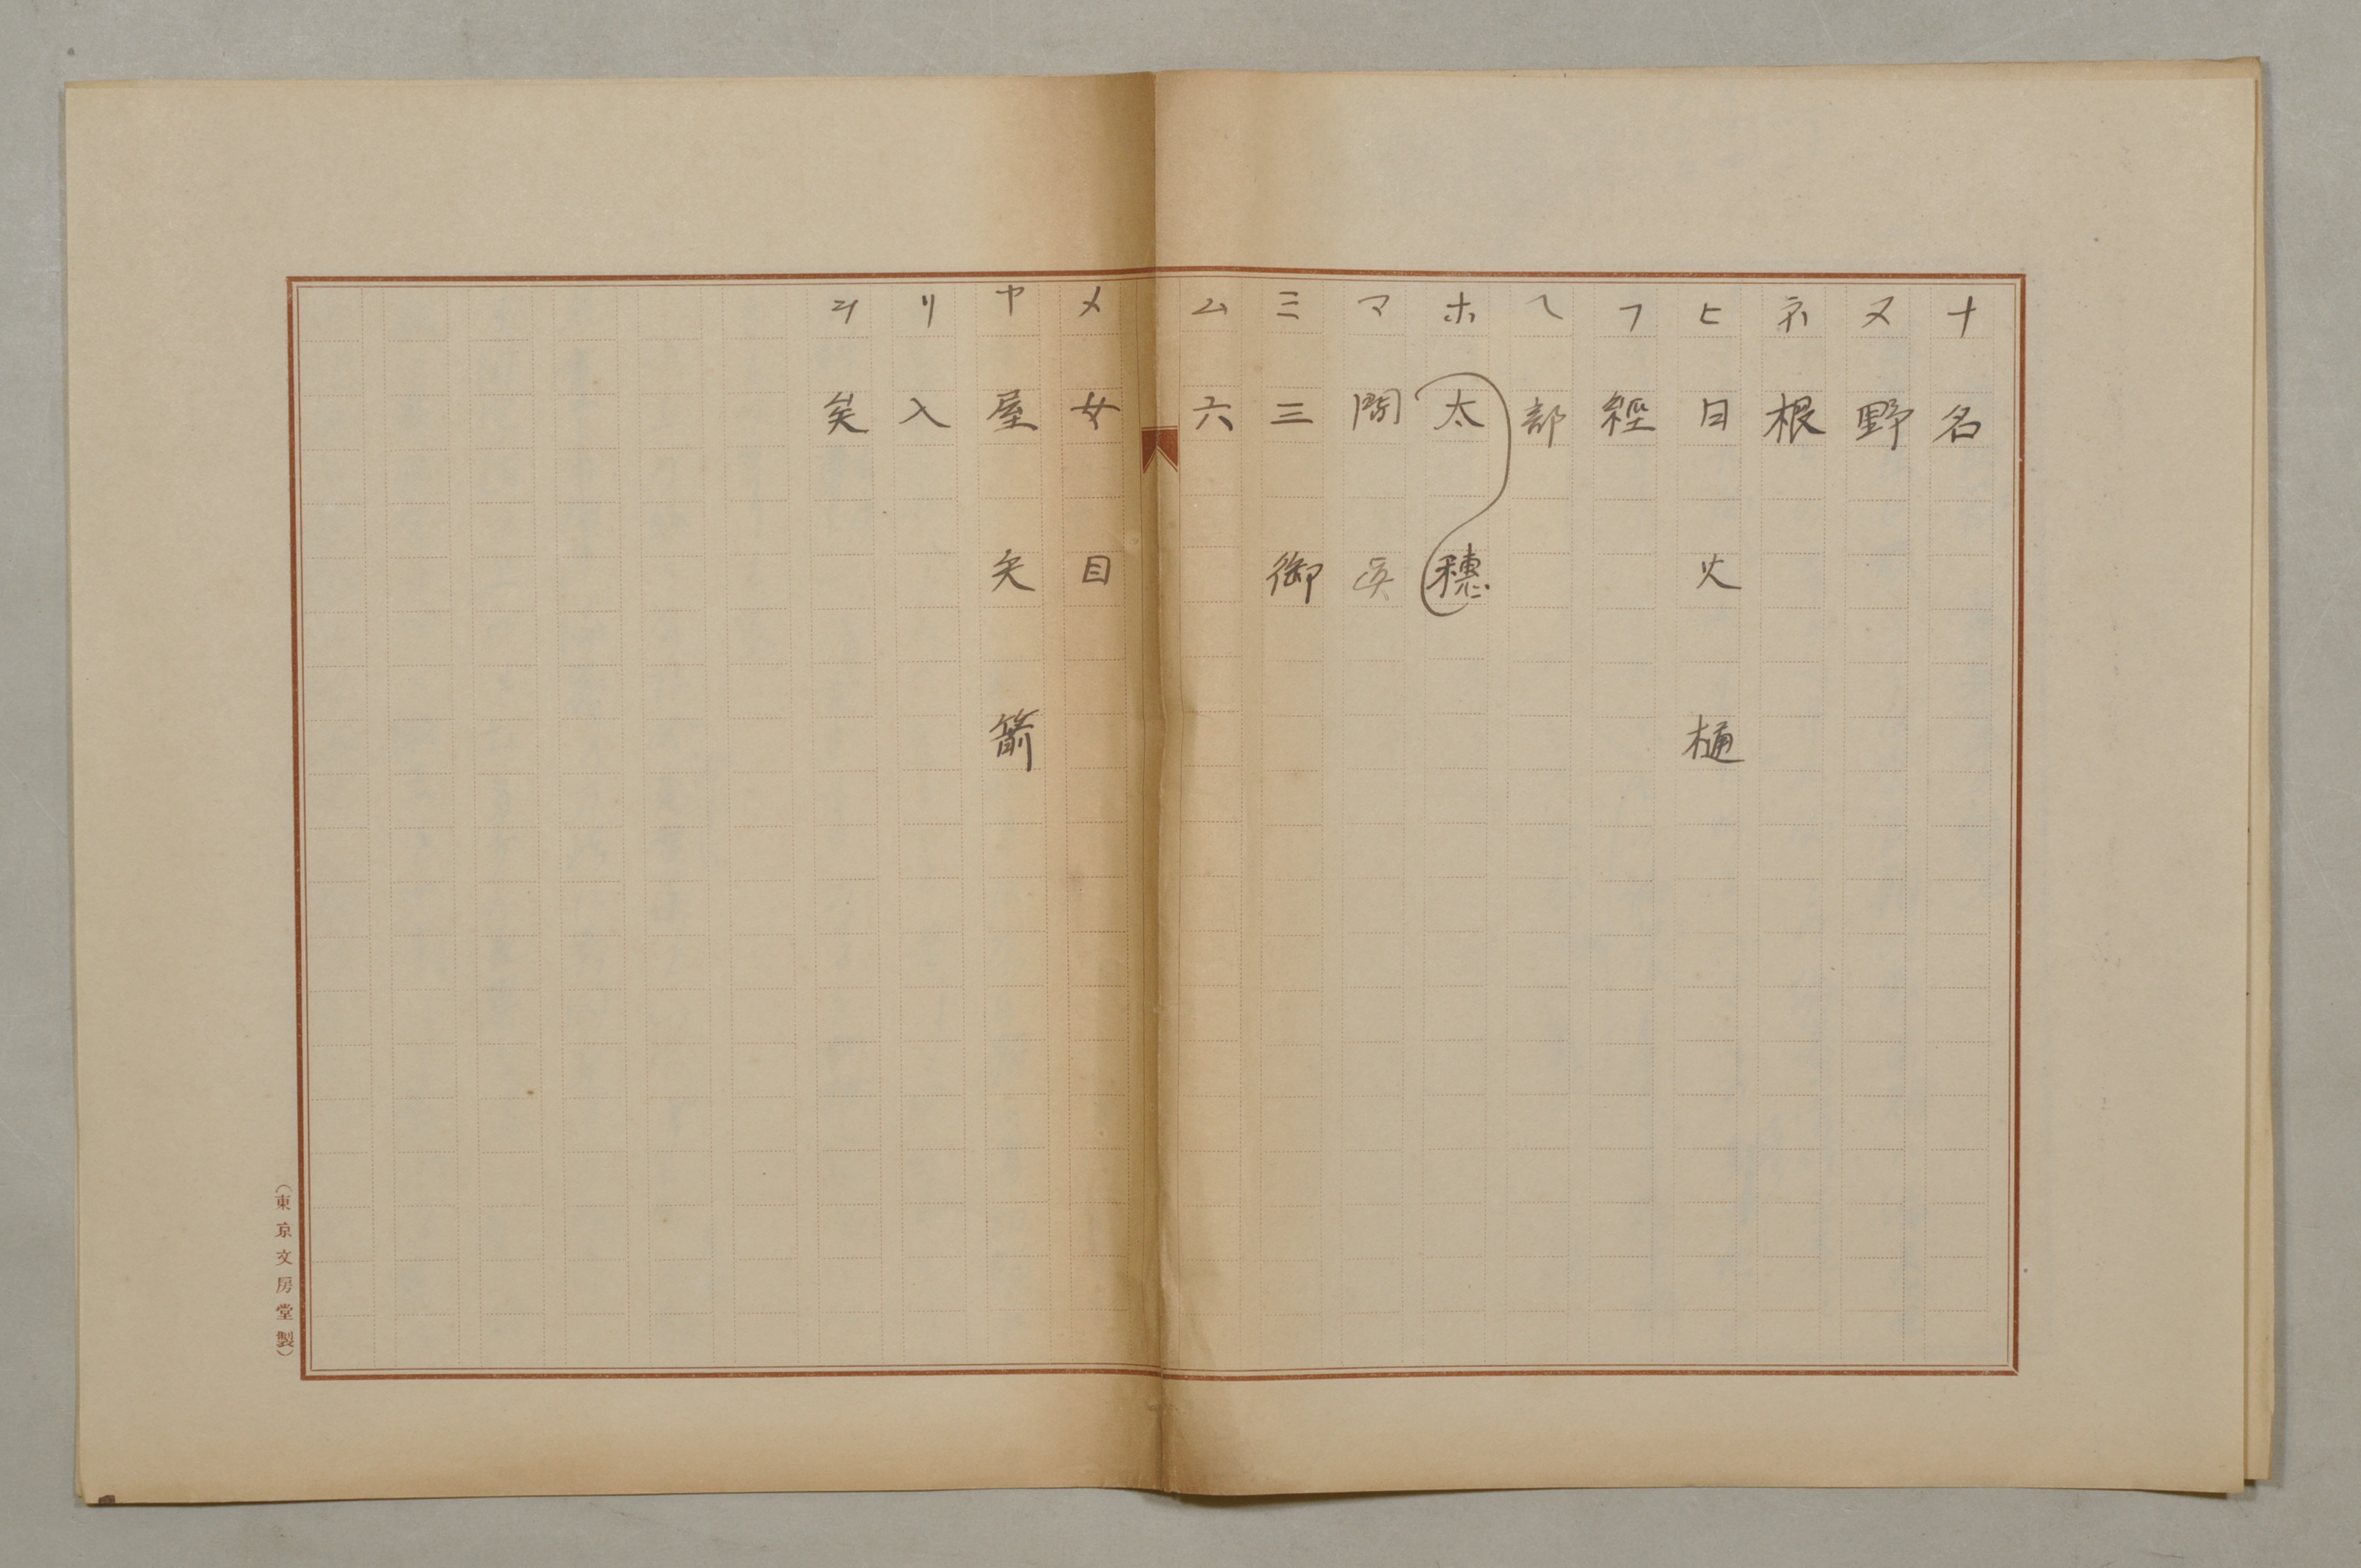 ナ 名
ヌ 野
ネ 根
ヒ 日 火 樋
フ 經
ヘ 部
ホ 太 穗
マ
ミ 三 御
ム 六
メ 女 目
ヤ 屋 矢 箭
リ 入
ヰ 矣
(東京文房堂製)